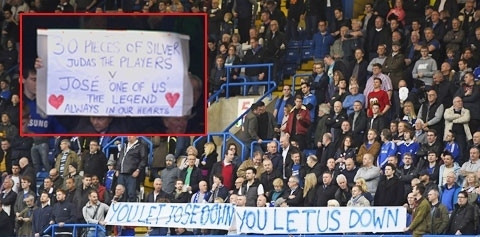 30 PIECES OF SILVER
JUDAS THE PLAYERS
V
JOSÉ ONE OF US
THE LEGEND
ALWAYS IN OUR HEARTS
SAMSUNG
YOU LET JOSE DOWN YOU LET US DOWN